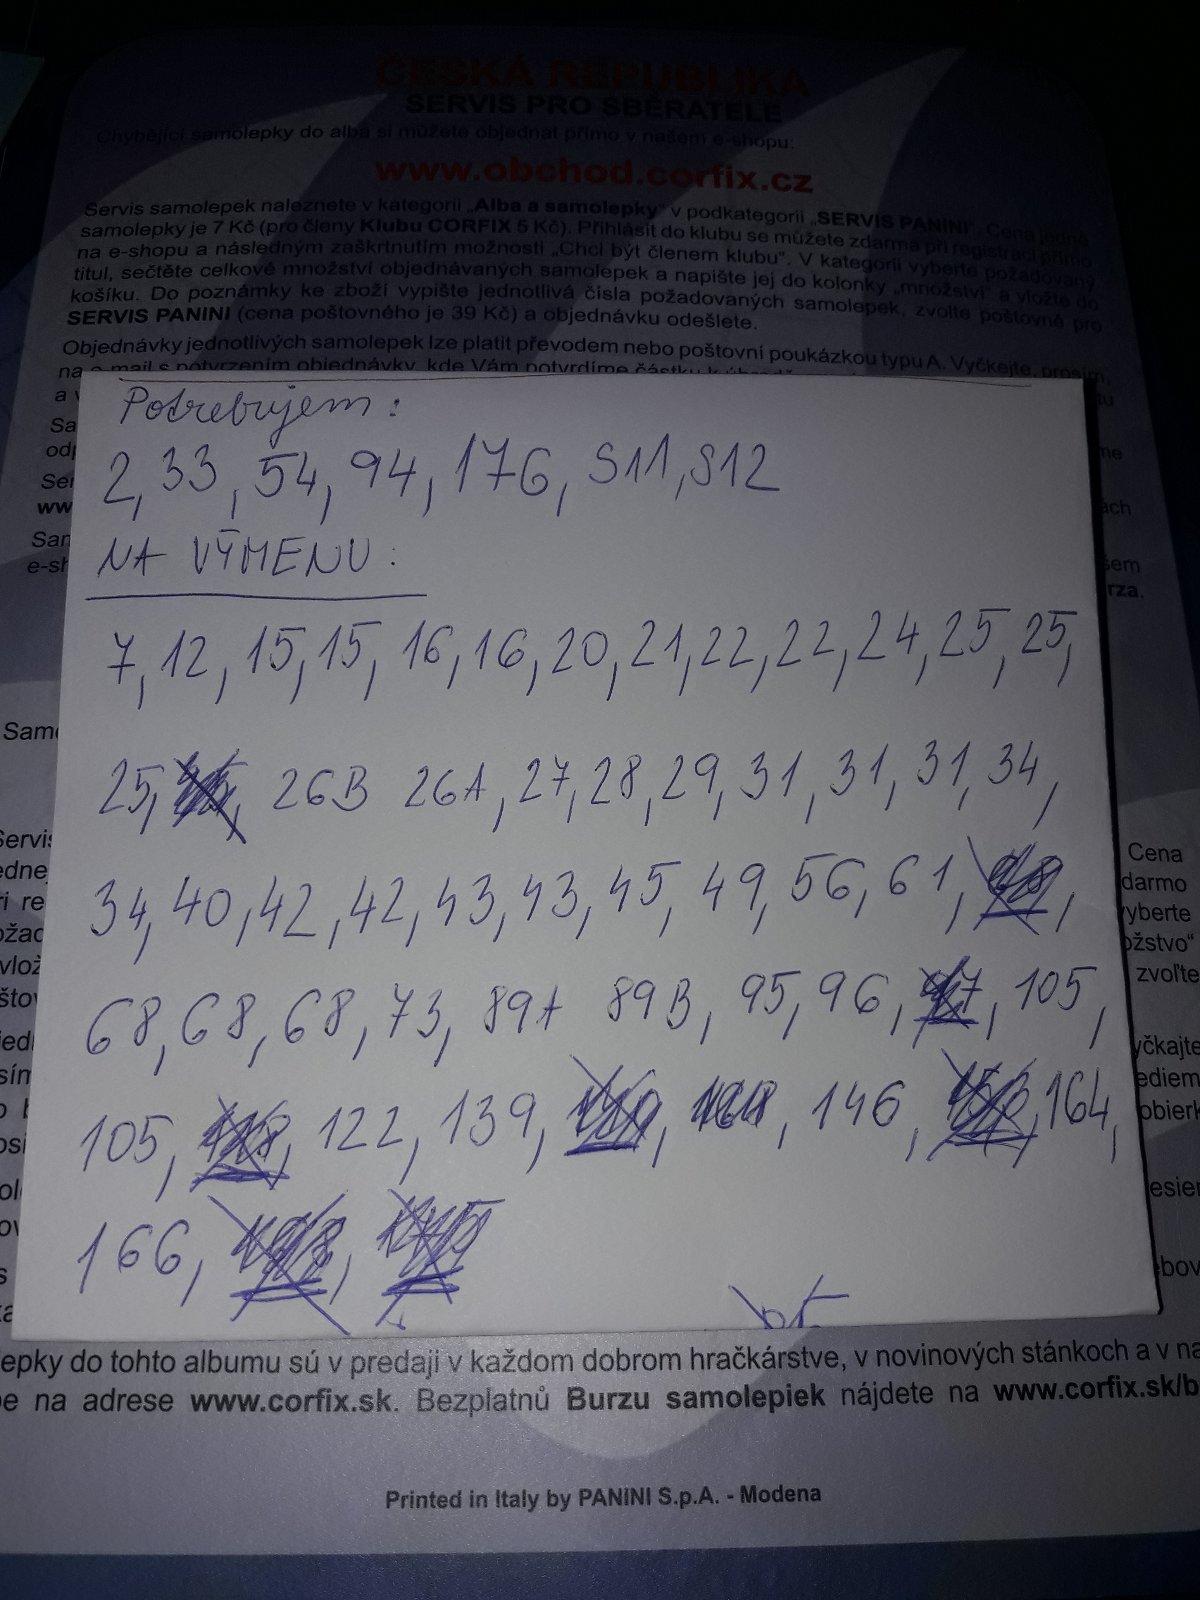 ČESKÁ REPUBLIKA
SERVIS PRO SBĚRATELE
Chybějící samolepky do alba si můžete objednat přímo v našem e-shopu:
www.obchod.corfix.cz
Servis samolepek naleznete v kategorii „Alba a samolepky“ v podkategorii „SERVIS PANINI“. Cena jedné
samolepky je 7 Kč (pro členy Klubu CORFIX 5 Kč). Přihlásit do klubu se můžete zdarma při registraci přímo
na e-shopu a následným zaškrtnutím možnosti „Chci být členem klubu“. V kategorii vyberte požadovaný
titul, sečtěte celkové množství objednávaných samolepek a napište jej do kolonky „množství“ a vložte do
košíku. Do poznámky ke zboží vypište jednotlivá čísla požadovaných samolepek, zvolte poštovné pro
SERVIS PANINI (cena poštovného je 39 Kč) a objednávku odešlete.
Objednávky jednotlivých samolepek lze platit převodem nebo poštovní poukázkou typu A. Vyčkejte, prosím,
na e-mail s potvrzením objednávky, kde Vám potvrdíme částku k
Potrebujem:
2, 33, 54, 94, 176, S11, S12
NA VÝMENU:
7, 12, 15, 15, 16, 16, 20, 21, 22, 22, 24, 25, 25,
25, 26B 26A, 27, 28, 29, 31, 31, 31, 34,
34, 40, 42, 42, 43, 43, 45, 49, 56, 61,
68, 68, 68, 73, 89A 89B, 95, 96, 105,
105, 122, 139, 146, 164,
166,
Cena
darmo
vyberte
zvoľte
lepky do tohto albumu sú v predaji v každom dobrom hračkárstve, v novinových stánkoch a v
na adrese www.corfix.sk. Bezplatnů Burzu samolepiek nájdete na www.corfix.sk/b
Printed in Italy by PANINI S.p.A. - Modena